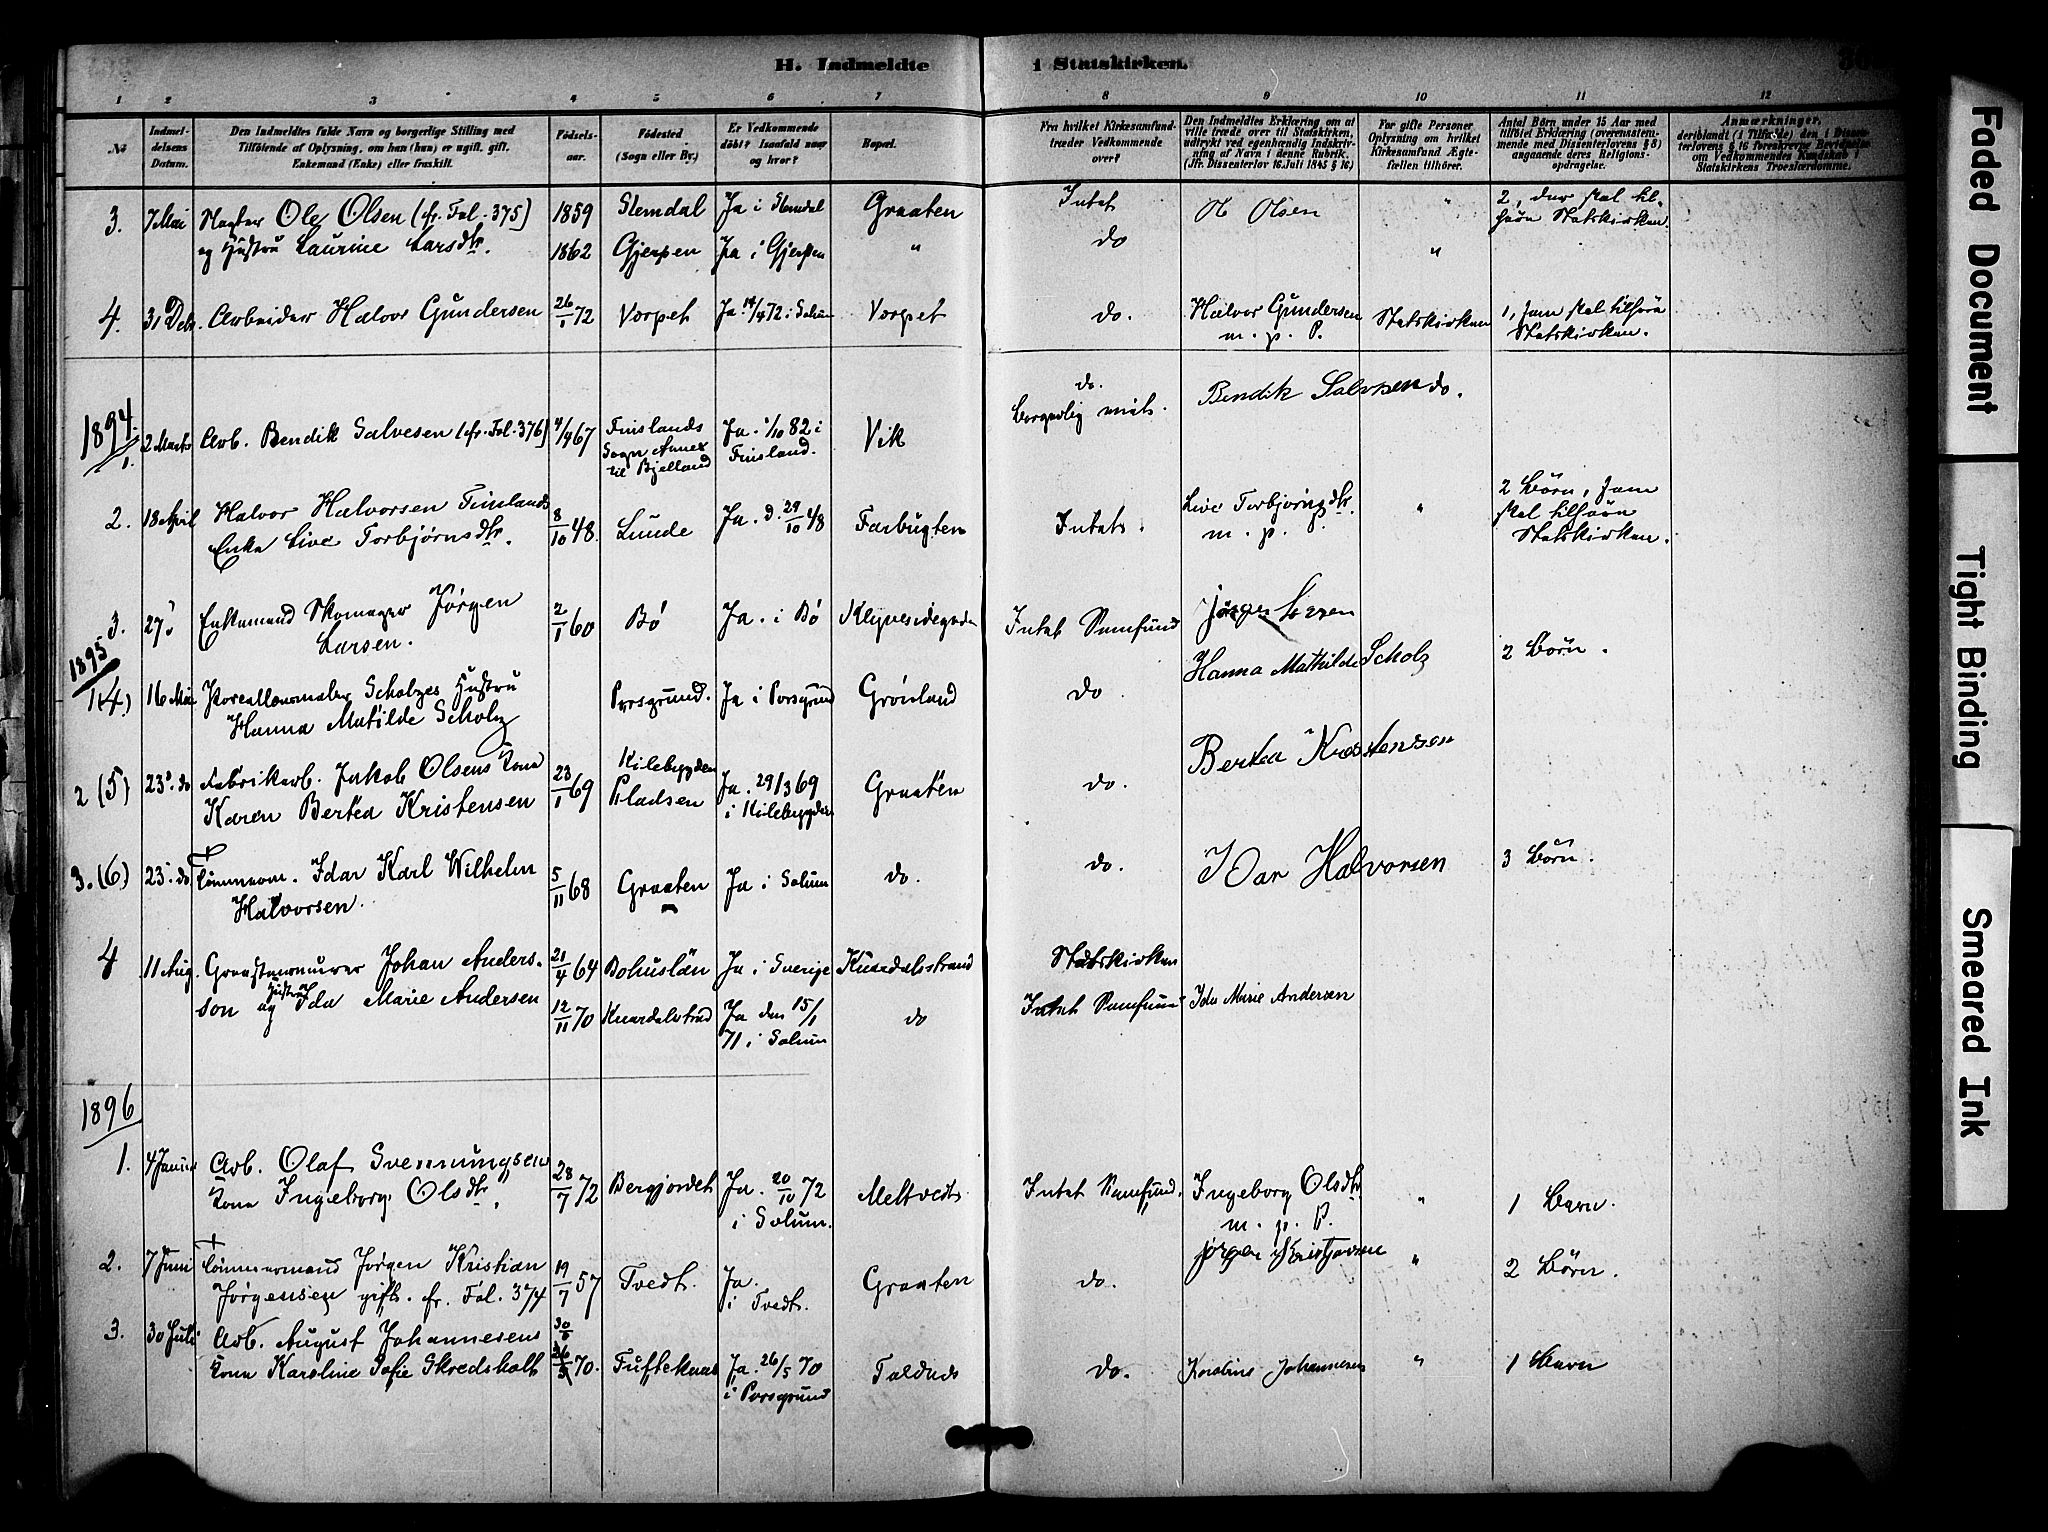 H. Indmeldte i Statskirken.
1 2 3 4 5 6 7 8 9 10 11 12
№
Indmel-
delsens
Datum.
Den Indmeldtes fulde Navn og borgerlige Stilling med
Tilføiende af Oplysning, om han (hun) er ugift, gift,
Enkemand (Enke) eller fraskilt.
Fødsels-
aar.
Fødested
(Sogn eller By.)
Er Vedkommende
døbt? Isaafald naar
og hvor?
Bopæl.
Fra hvilket Kirkesamfund-
træder Vedkommende
over?
Den Indmeldtes Erklæring om at
ville træde over til Statskirken,
udtrykt ved egenhændig Indskriv-
ning af Navn i denne Rubrik.
(Jfr. Dissenterlov 16. Juli 1845 § 16.)
For gifte Personer
Oplysning om hvilket
Kirkesamfund Ægte-
fællen tilhører.
Antal Børn under 15 Aar med
tilføiet Erklæring (overensstem-
mende med Dissenterlovens § 8)
angaaende deres Religions-
opdragelse.
Anmærkninger,
deriblandt (i Tilfælde) den i Dissen-
terlovens § 16 foreskrevne Bevidnelse
om Vedkommendes Kundskab i
Statskirkens Troeslærdomme.
3. 7 Mai Ole Olsen (cfr. Fol. 375) 1859 Slemdal Ja i Slemdal Graaten Intet O Olsen " 2, der skal til-
høre Statskirken.
og Hustru Laurine Larsdtr. 1862 Gjerpen Ja i Gjerpen " do "
4. 31 Debr. Arbeider Halvor Gundersen 26/1 72 Vorpet Ja 14/4 72 i Solum Vorpet do. Halvor Gundersen
m. p. P. Statskirken 1, som skal tilhøre
Statskirken.
1894.
1. 2 Marts Arb. Bendik Salvesen (cfr. Fol. 376) 4/4 67 Finslands
Sogn Annex
til Bjelland Ja. 1/10 82 i
Finsland. Vik do. Bendik Salvesen do.
2. 18 April Halvor Halvorsen Finlands
Enke Live Torbjørnsdtr. 8/10 48. Lunde Ja. d. 29/10 48 Farbugten Intet. Live Torbjørnsdtr.
m. p. P. " 2 Børn, som
skal tilhøre
Statskirken.
3. 27. Enkemand Skomager Jørgen
Larsen. 2/1 60 Bø Ja. i Bø Intet Samfund Jørgen Larsen
1895
1(4) 16 Mai Porcellænsmaler Scholzes Hustru
Hanna Matilde Scholz Porsgrund. Ja i Porsgrund Grønland do. Hanna Mathilde Scholz 2 Børn.
2 (5) 23. do Fabrikarb. Jakob Olsens Kone
Karen Bertea Kristensen 23/1 69 Kilebygden
Pladsen Ja. 29/3 69
i Kilebygden Graaten do. Bertea Kristensen
3. (6) 23. do Tømmerm. Idar Karl Wilhelm
Halvorsen. 5/11 68 Graaten Ja i Solum do. do. Idar Halvorsen 3 Børn.
4 11 Aug. Johan Anders-
son og Hustru Ida Marie Andersen 21/4 64 Bohuslän Ja i Sverige Knardalsstrand Statskirken
12/11 70 Knardalstrand Ja den 15/1
71 i Solum do Intet Samfund Ida Marie Andersen
1896
1. Arb. Olaf Svennungsens
Kone Ingeborg Olsdtr. 28/7 72 Bergjordet Ja. 20/10 72
i Solum. Meltvedt Intet Samfund. Ingeborg Olsdtr
m. p. P. " 1 Barn.
2. 7 Juni Tømmermand Jørgen Kristian
Jørgensen gift. cfr. Fol. 374 19/7 57 Tvedt. Ja.
i Tvedt. Graaten do. Jørgen " 2 Børn.
3. 30 Juli Arb. August Johannesens
Kone Karoline Sofie Skredsholt 70. Ja. 26/5 70
i Porsgrund do. Karoline Johannesen " 1 Barn
Faded Document
Tight Binding
Smeared Ink